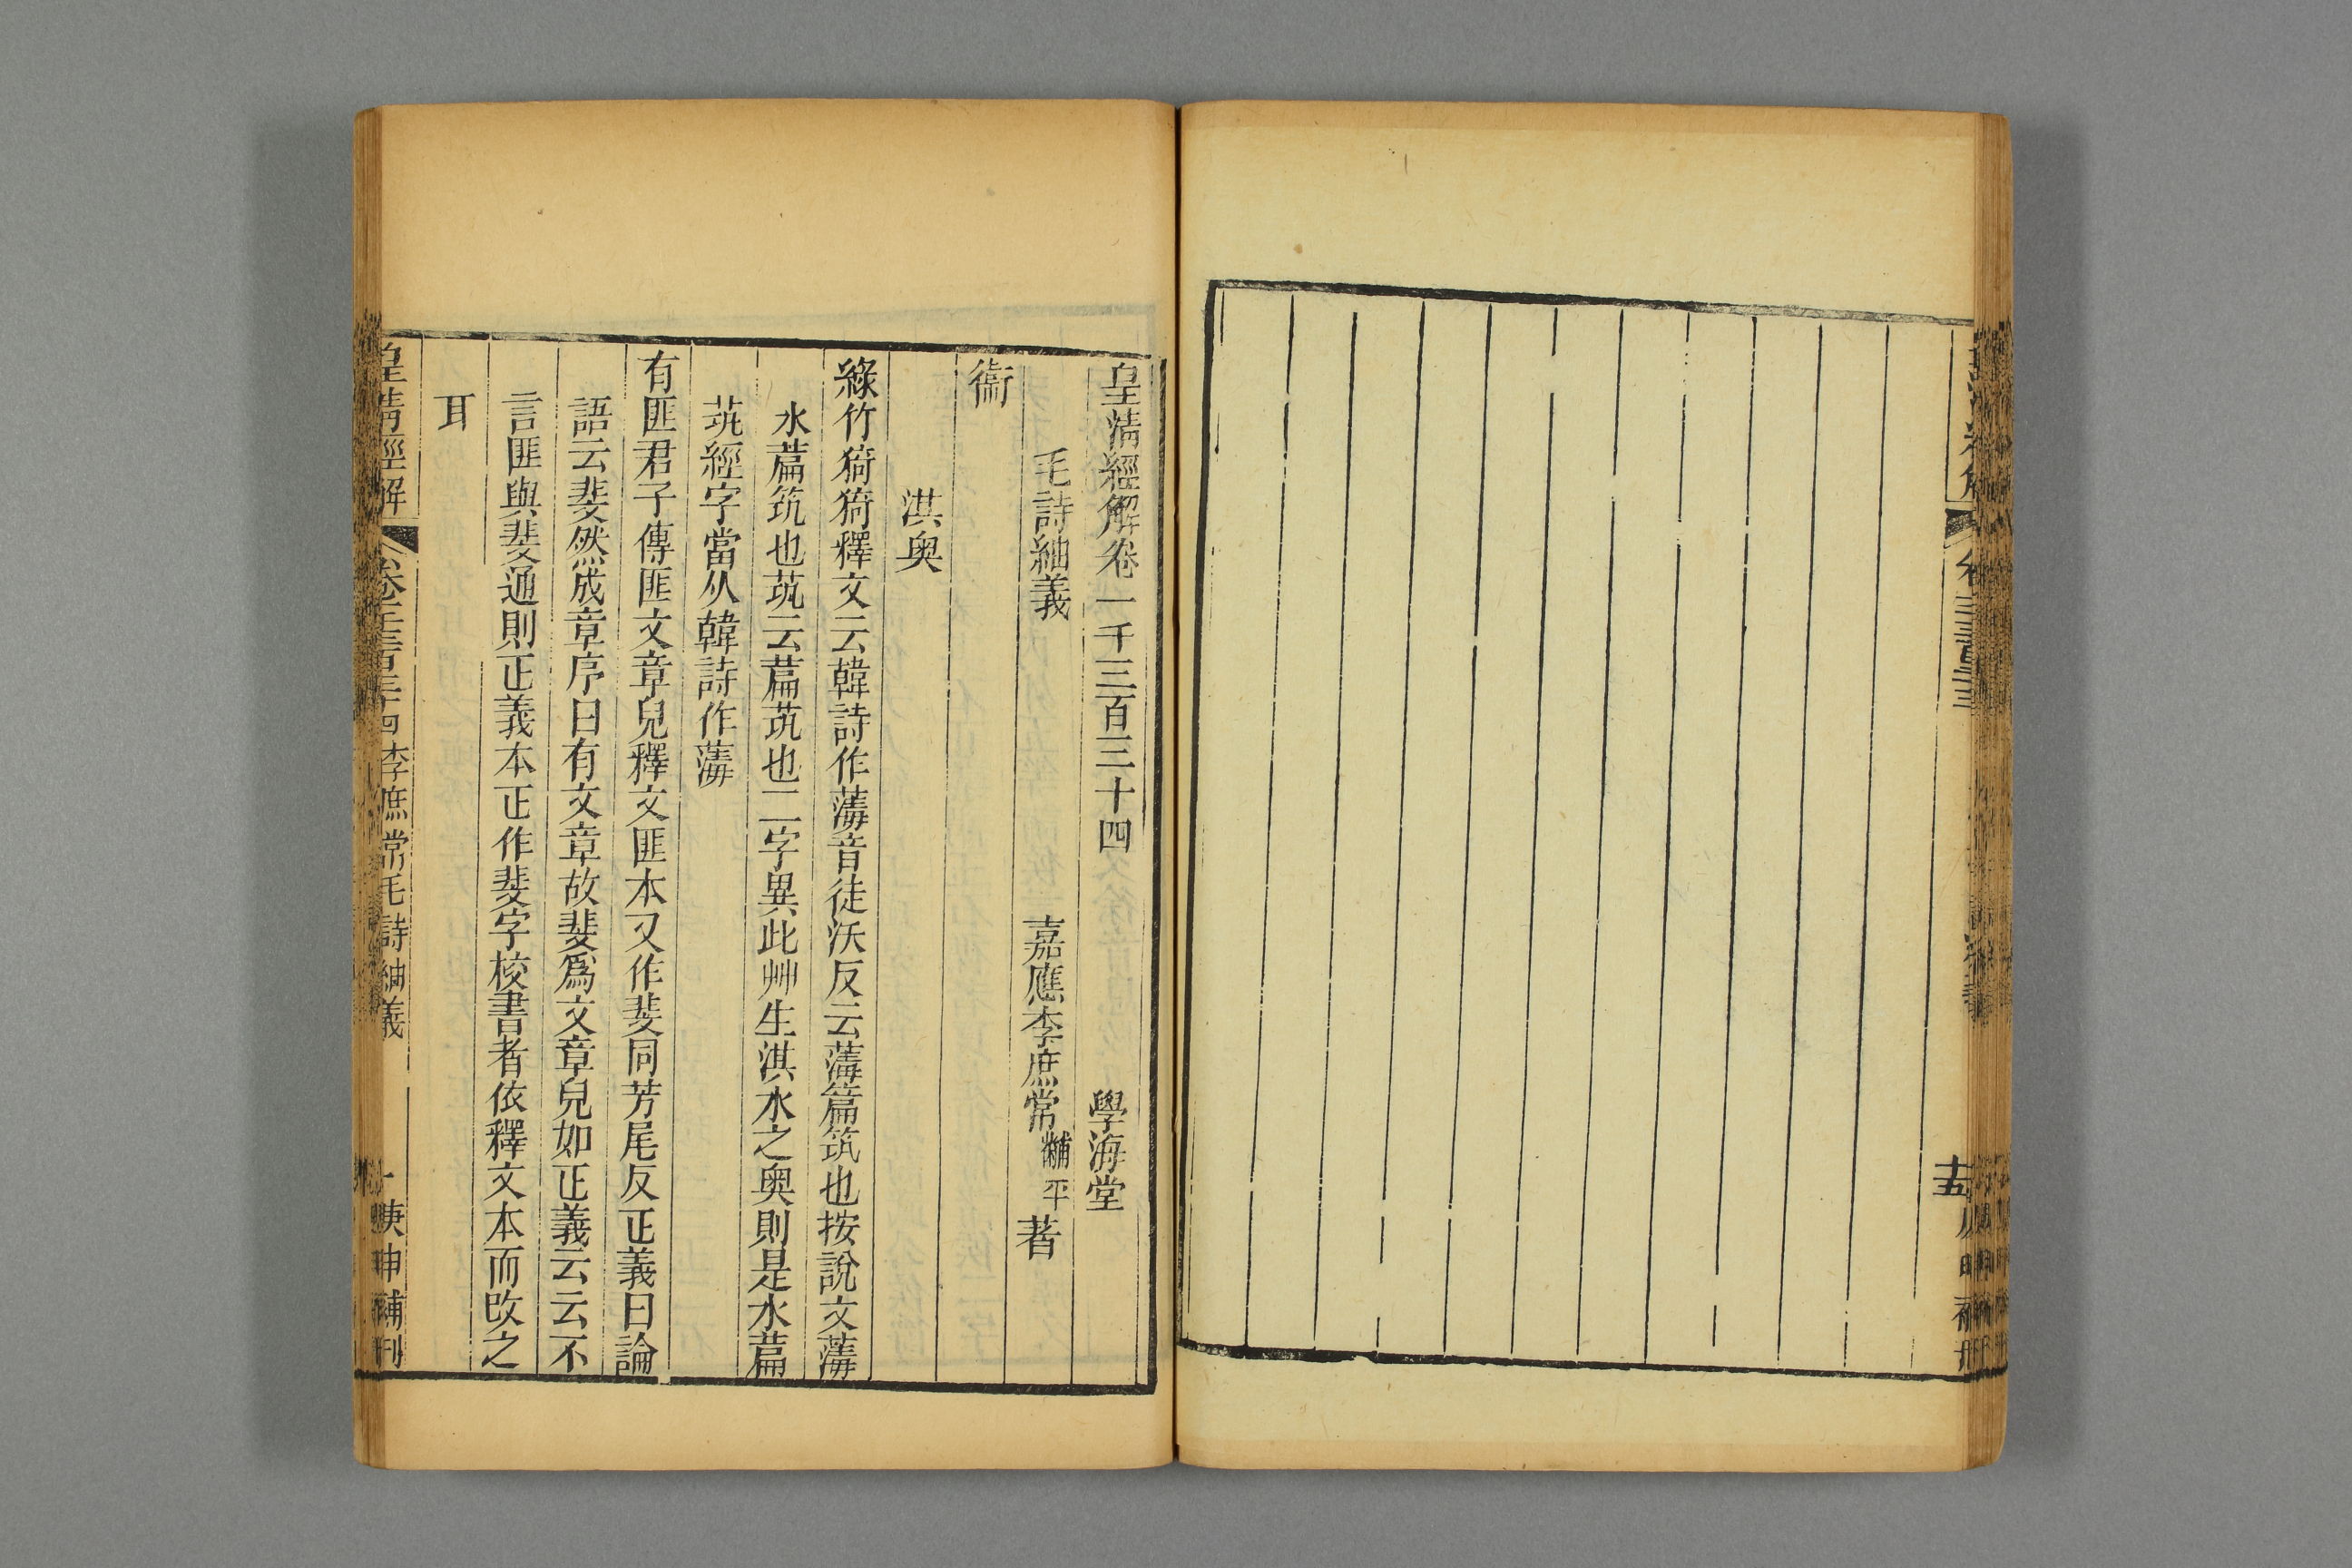 十五
皇清經解卷一千三百三十四
學海堂
毛詩紬義
嘉應李庶常黼平著
衞
淇奥
綠竹猗猗釋文云韓詩作薄音徒沃反云薄篇筑也按說文薄
水萹筑也茿云萹茿也二字異此艸生淇水之奥則是水萹
茿經字當从韓詩作薄
有匪君子傳匪文章皃釋文匪本又作斐同芳尾反正義曰論
語云斐然成章序曰有文章故斐爲文章皃如正義云云不
言匪與斐通則正義本正作斐字校書者依釋文本而改之
耳
皇清經解
卷一千三百三十四李庶常毛詩紬義
一
庚申補刊